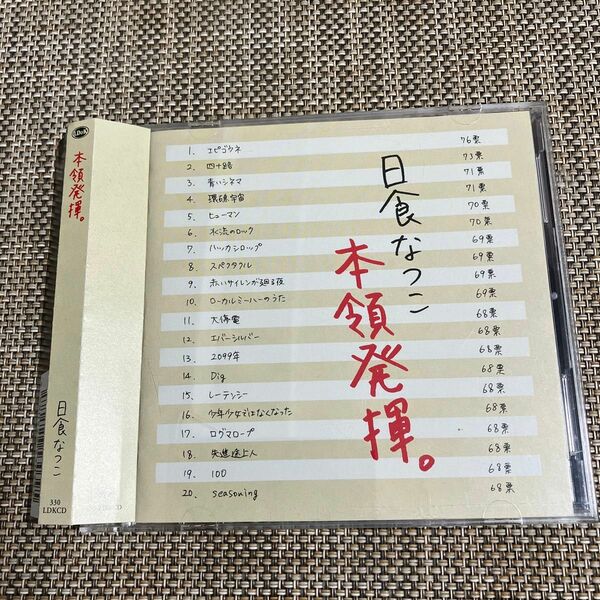 LDK
本領発揮。
日食なつこ
330
LDKCD
1. エピゴウネ 76票
2. 四十路 73票
3. 青いシネマ 71票
4. 環礁宇宙 71票
5. ヒューマン 70票
6. 水流のロック 70票
7. ハッカシロップ 69票
8. スペクタクル 69票
9. 赤いサイレンが廻る夜 69票
10. ローカルミーハーのうた 69票
11. 大停電 68票
12. エバーシルバー 68票
13. 2099年 68票
14. Dig 68票
15. レーテンシー 68票
16. 少年少女ではなくなった 68票
17. ログマロープ 68票
18. 先進途上人 68票
19. 100 68票
20. seasoning 68票
日食なつこ
本領発揮。